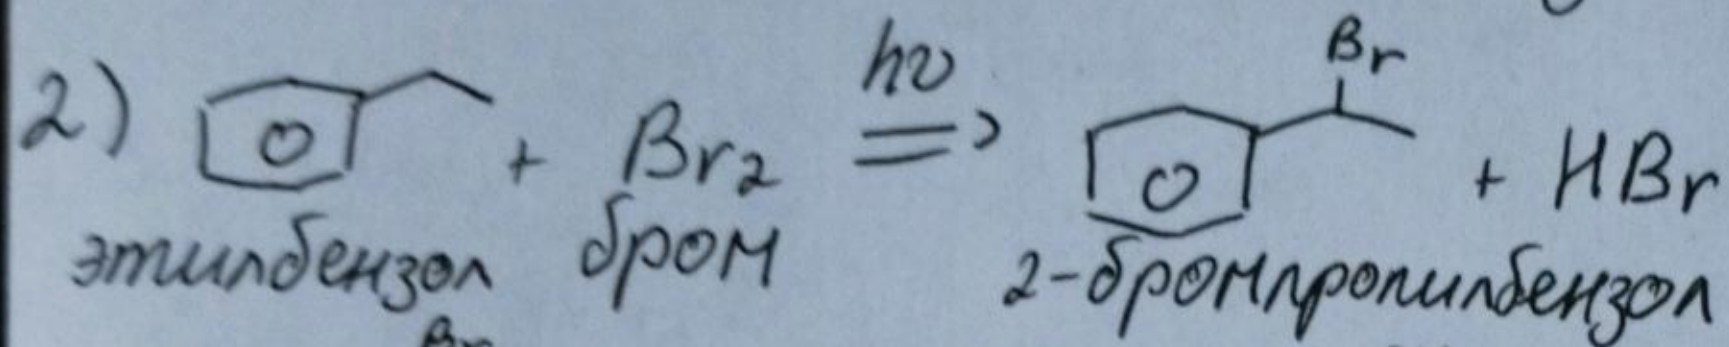 Br
hν
2) + Br2 => + HBr
этилбензол бром 2-бромпропилбензол
Br